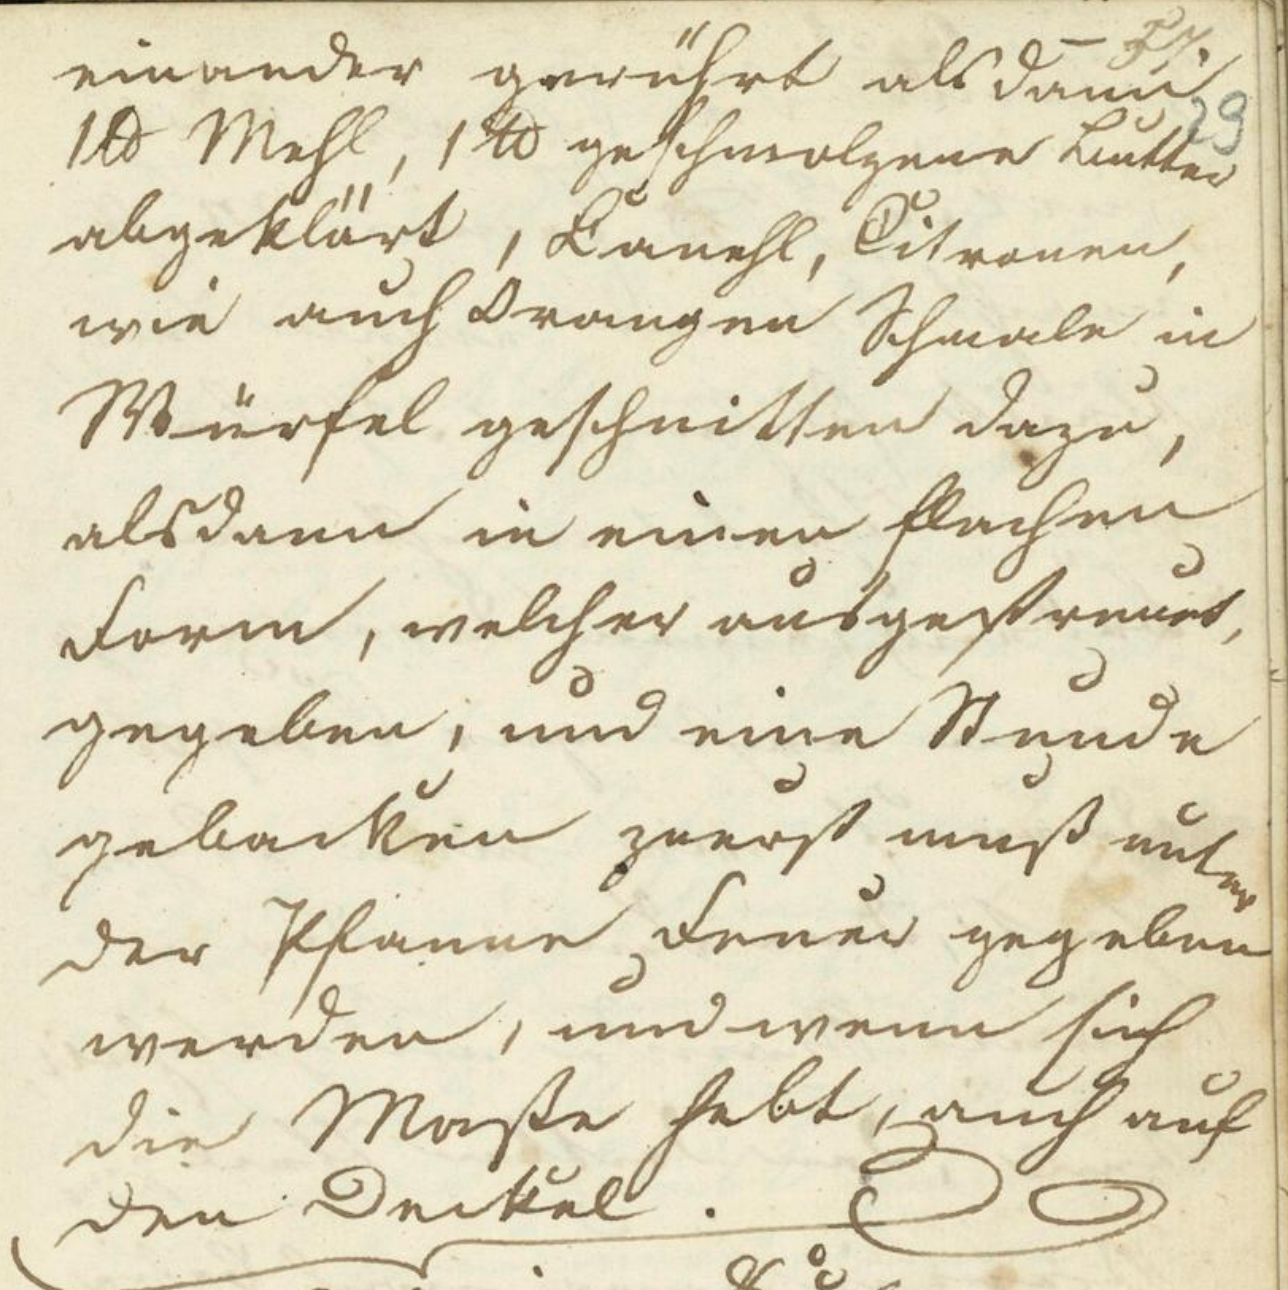 57.
29
einander gerührt alsdann
1 ℔ Mehl, 1 ℔ geschmolzene Butter
abgeklärt, Canehl, Citronen,
wie auch Orangen Schmale in
Würfel geschnitten dazu,
alsdann in einen flachen
Form, welcher ausgestreuet,
gegeben, und eine Stunde
gebacken zuerst muß unter
der Pfanne Feuer gegeben
werden, und wenn sich
die Maße hebt, auch auf
den Deckel.